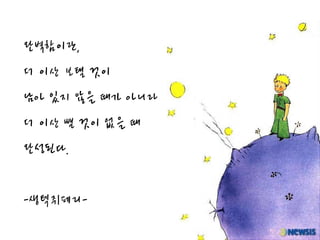 완벽함이란,
더 이상 보탤 것이
남아 있지 않을 때가 아니라
더 이상 뺄 것이 없을 때
완성된다.
-생텍쥐페리-
NEWSIS